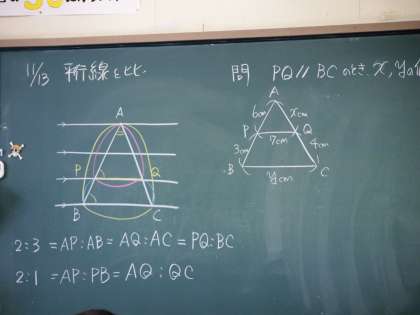 11/13 平行線と比
問 PQ // BC のとき、x, yの
A
6cm
xcm
P
Q
7cm
3cm
4cm
B
C
ycm
A
P
Q
B
C
2:3 = AP:AB = AQ:AC = PQ:BC
2:1 = AP:PB = AQ:QC